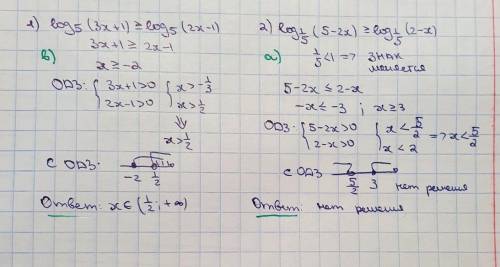 1) log₅(3x+1) ≥ log₅(2x-1)
в) 3x+1 ≥ 2x-1
x ≥ -2
ОДЗ: { 3x+1>0 { x>-1/3
2x-1>0 x>1/2
⇓
x>1/2
С ОДЗ:
-2 1/2
Ответ: x∈(1/2; +∞)
2) log₁/₅(5-2x) ≥ log₁/₅(2-x)
а) 1/5<1 => ЗНАК
меняется
5-2x ≤ 2-x
-x ≤ -3 ; x ≥ 3
ОДЗ: { 5-2x>0 { x<5/2 => x<5/2
2-x>0 x<2
С ОДЗ
5/2 3 нет решения
Ответ: нет решения